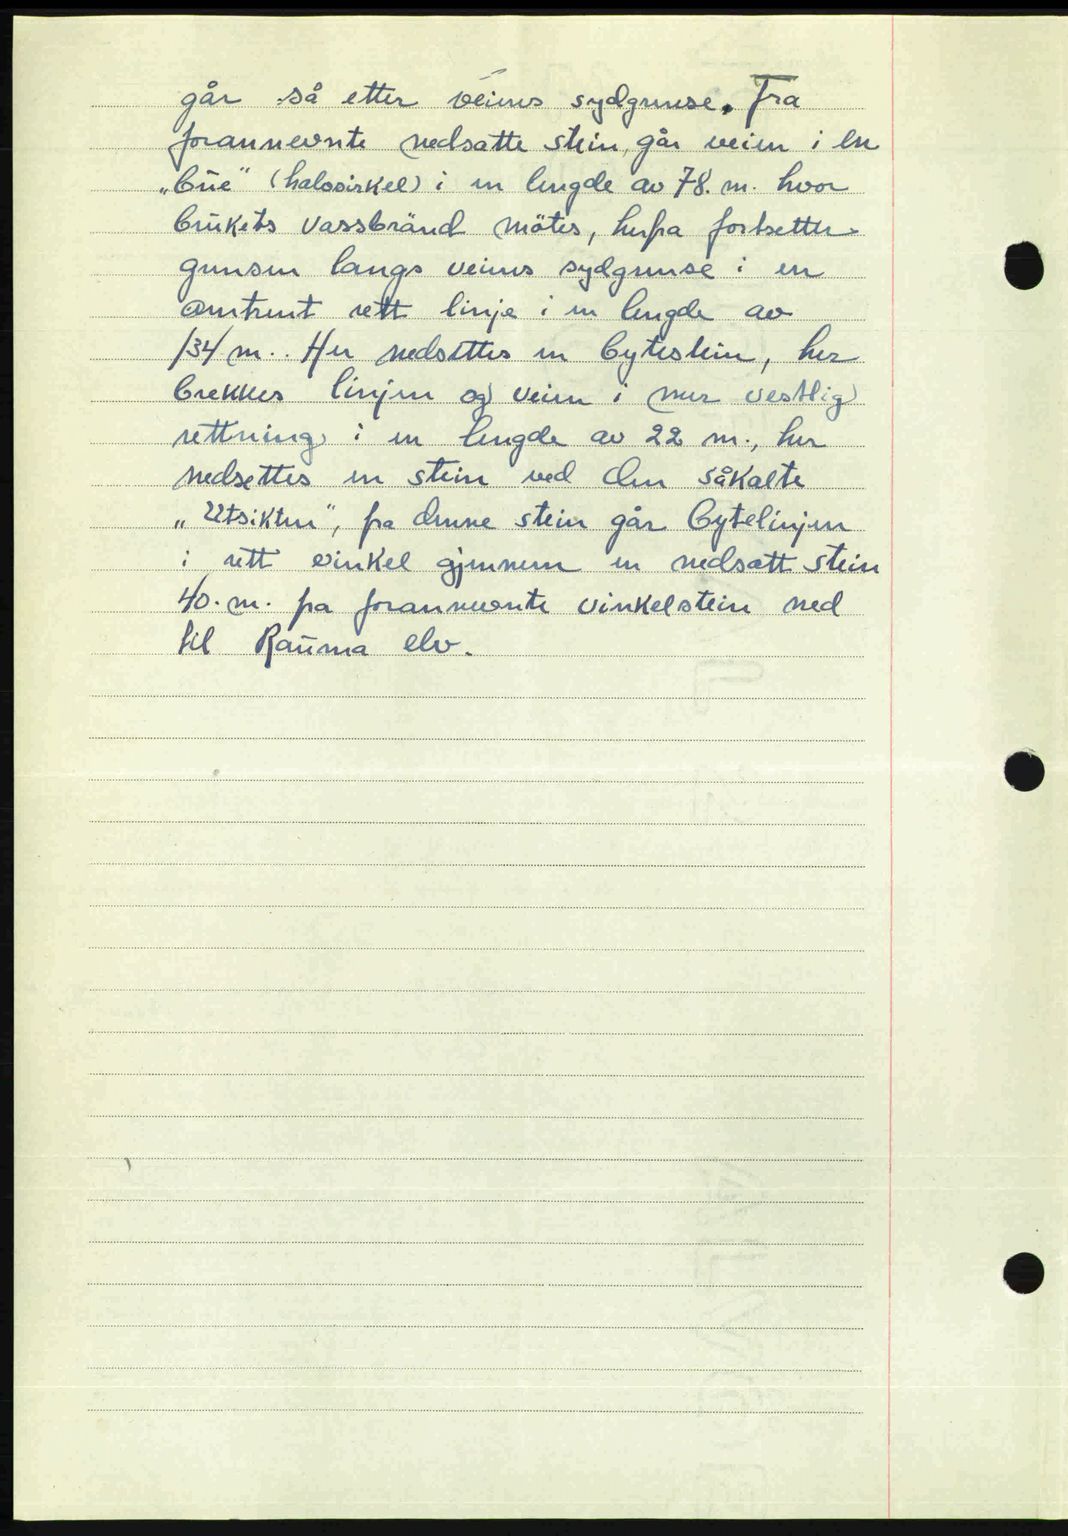 går så etter veiens sydgrense. Fra
forannevnte nedsatte stein, går veien i en
„bue" (halvsirkel) i en lengde av 78. m. hvor
brukets vassbränd mötes, herfra fortsetter
grensen langs veiens sydgrense i en
omtrent rett linje i en lengde av
134 m.. Her nedsettes en bytestein, her
brekkes linjen og veien i mer vestlig
rettning i en lengde av 22 m., her
nedsettes en stein ved den såkalte
„Utsikten", fra denne stein går bytelinjen
i rett vinkel gjennem en nedsatt stein
40. m. fra forannevnte vinkelstein ned
til Rauma elv.